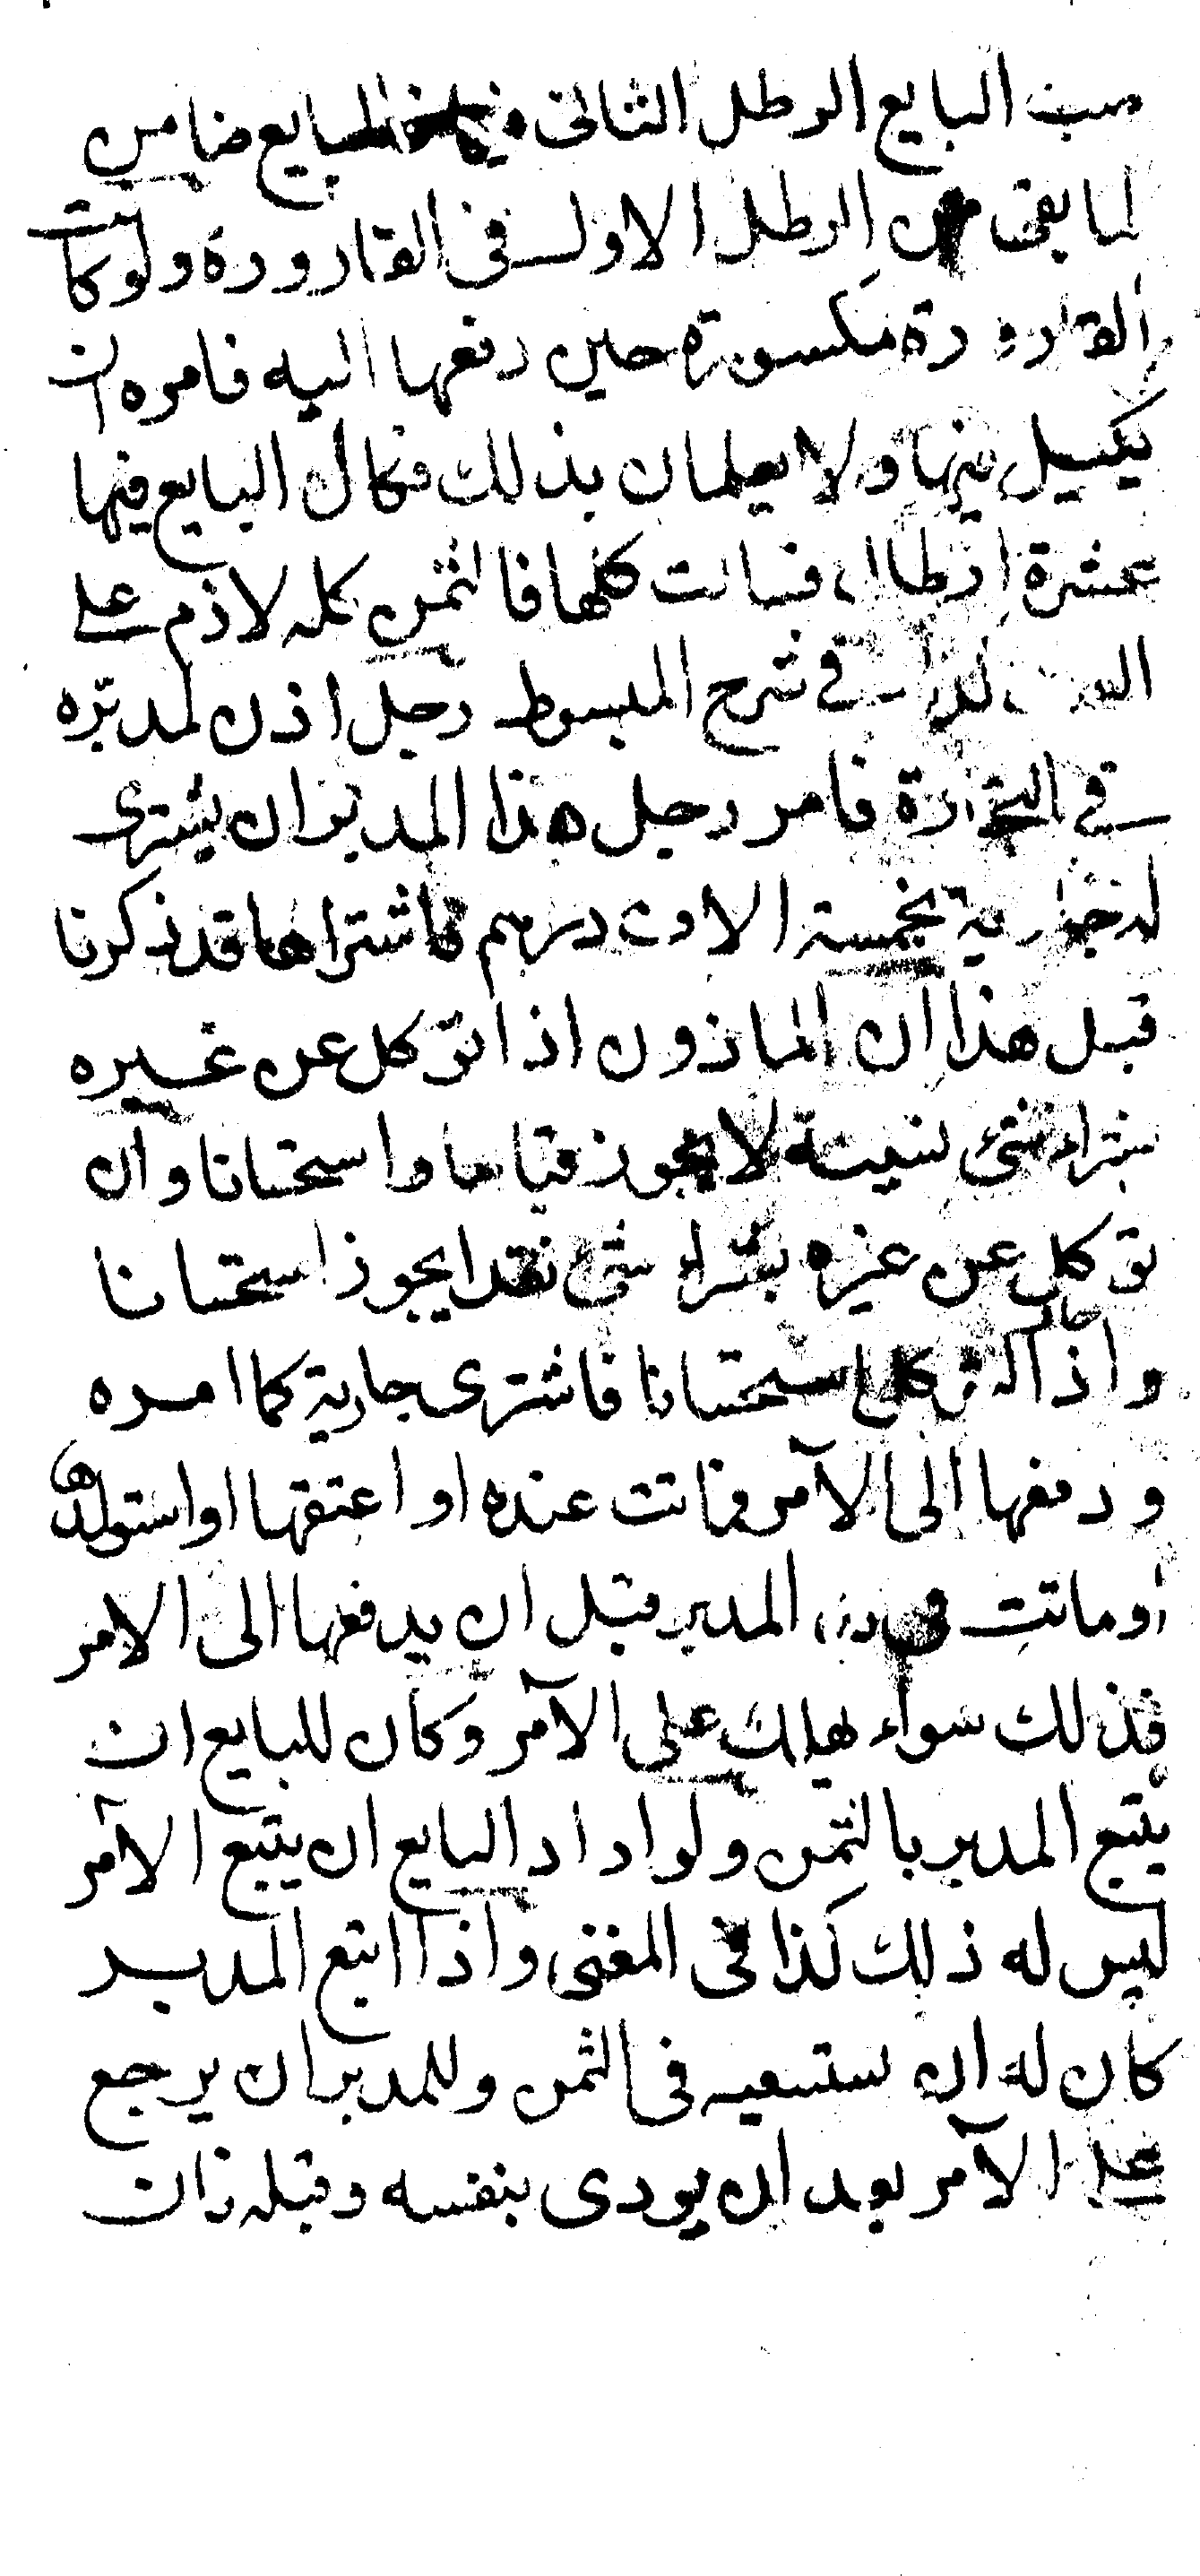 صب البايع الرطل الثانى فيها فالبايع ضامن
لما بقى من الرطل الاول فى القارورة ولو كانت
القارورة مكسورة حين دفعها اليه فامره ان
يكيل فيها ولا يعلمان بذلك فكال البايع فيها
عشرة ارطال فسالت كلها فالثمن كله لازم على
فى شرح المبسوط رجل اذن لمدبّره
فى التجارة فامر رجل هذا المدبر ان يشترى
له جارية بخمسة الاف درهم فاشتراها قد ذكرنا
قبل هذا ان الماذون اذا توكل عن غيره
بشراء شئ نسيئة لا يجوز قياسا واستحسانا وان
توكل عن غيره بشراء شئ نقدا يجوز استحسانا
واذا جاز التوكل استحسانا فاشترى جارية كما امره
ودفعها الى الآمر فماتت عنده او اعتقها او استولدها
او ماتت فى يد المدبر قبل ان يدفعها الى الامر
فذلك سواء يهلك على الآمر وكان للبايع ان
يتبع المدبر بالثمن ولو اراد البايع ان يتبع الآمر
ليس له ذلك كذا فى المغنى واذا اتبع المدبر
كان له ان يستسعيه فى الثمن وللمدبر ان يرجع
على الآمر بعد ان يودى بنفسه وقبله فان